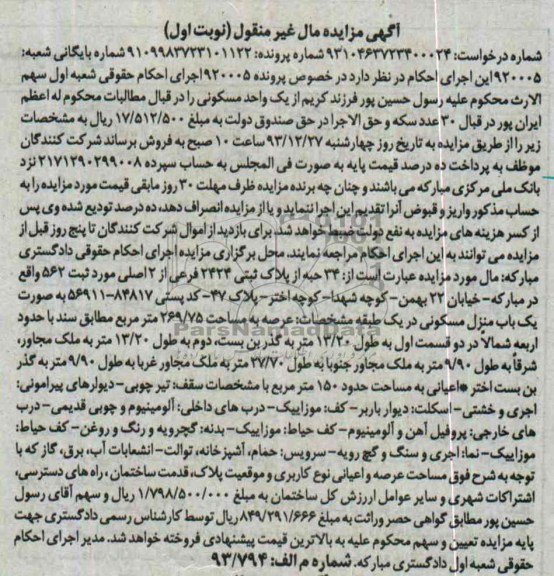 آگهی مزایده مال غیر منقول (نوبت اول)
شماره درخواست: ۹۳۱۰۴۶۳۷۲۳۴۰۰۰۲۴ شماره پرونده: ۹۱۰۹۹۸۳۷۲۳۱۰۱۱۲۲ شماره بایگانی شعبه:
۹۲۰۰۰۵ این اجرای احکام در نظر دارد در خصوص پرونده ۹۲۰۰۰۵ اجرای احکام حقوقی شعبه اول سهم
الارث محکوم علیه رسول حسین پور فرزند کریم از یک واحد مسکونی را در قبال مطالبات محکوم له اعظم
ایران پور در قبال ۳۰ عدد سکه و حق الاجرا در حق صندوق دولت به مبلغ ۱۷/۵۱۲/۵۰۰ ریال به مشخصات
زیر را از طریق مزایده به تاریخ روز چهارشنبه ۹۳/۱۲/۲۷ ساعت ۱۰ صبح به فروش برساند شرکت کنندگان
موظف به پرداخت ده درصد قیمت پایه به صورت فی المجلس به حساب سپرده ۲۱۷۱۲۹۰۲۹۹۰۰۸ نزد
بانک ملی مرکزی مبارکه می باشند و چنان چه برنده مزایده ظرف مهلت ۳۰ روز مابقی قیمت مورد مزایده را به
حساب مذکور واریز و قبوض آنرا تقدیم این اجرا ننماید و یا از مزایده انصراف دهد، ده درصد تودیع شده وی پس
از کسر هزینه های مزایده به نفع دولت ضبط خواهد شد. برای بازدید از اموال شرکت کنندگان تا پنج روز قبل از
مزایده می توانند به این اجرای احکام مراجعه نمایند. محل برگزاری مزایده اجرای احکام حقوقی دادگستری
مبارکه: مال مورد مزایده عبارت است از: ۳۴ حبه از پلاک ثبتی ۲۴۲۴ فرعی از ۲ اصلی مورد ثبت ۵۶۲ واقع
در مبارکه- خیابان ۲۲ بهمن- کوچه شهدا- کوچه اختر- پلاک ۴۷- کد پستی ۸۴۸۱۷-۵۶۹۱۱ به صورت
یک باب منزل مسکونی در یک طبقه مشخصات: عرصه به مساحت ۲۶۹/۷۵ متر مربع مطابق سند با حدود
اربعه شمالاً در دو قسمت اول به طول ۱۳/۲۰ متر به گذر بن بست، دوم به طول ۱۳/۲۰ متر به ملک مجاور،
شرقاً به طول ۹/۹۰ متر به ملک مجاور جنوبا به طول ۲۷/۷۰ متر به ملک مجاور غربا به طول ۹/۹۰ متر به گذر
بن بست اختر *اعیانی به مساحت حدود ۱۵۰ متر مربع با مشخصات سقف: تیر چوبی- دیوارهای پیرامونی:
اجری و خشتی- اسکلت: دیوار باربر- کف: موزاییک- درب های داخلی: آلومینیوم و چوبی قدیمی- درب
های خارجی: پروفیل آهن و آلومینیوم- کف حیاط: موزاییک- بدنه: گچرویه و رنگ و روغن- کف حیاط:
موزاییک- نما: اجری و سنگ و گچ رویه- سرویس: حمام، آشپزخانه، توالت- انشعابات آب، برق، گاز که با
توجه به شرح فوق مساحت عرصه و اعیانی نوع کاربری و موقعیت پلاک، قدمت ساختمان، راه های دسترسی،
اشتراکات شهری و سایر عوامل ارزش کل ساختمان به مبلغ ۱/۷۹۸/۵۰۰/۰۰۰ ریال و سهم آقای رسول
حسین پور مطابق گواهی حصر وراثت به مبلغ ۸۴۹/۲۹۱/۶۶۶ ریال توسط کارشناس رسمی دادگستری جهت
پایه مزایده تعیین و سهم محکوم علیه به بالاترین قیمت پیشنهادی فروخته خواهد شد. مدیر اجرای احکام
حقوقی شعبه اول دادگستری مبارکه. شماره م الف: ۹۳/۷۹۴
ParsNamadData